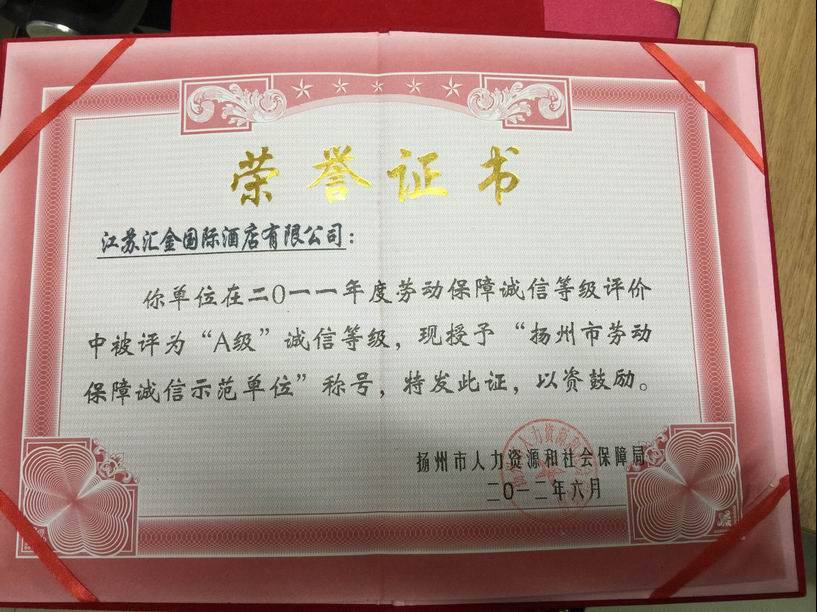 荣誉证书
江苏汇金国际酒店有限公司：
你单位在二〇一一年度劳动保障诚信等级评价
中被评为“A级”诚信等级，现授予“扬州市劳动
保障诚信示范单位”称号，特发此证，以资鼓励。
扬州市人力资源和社会保障局
二〇一二年六月